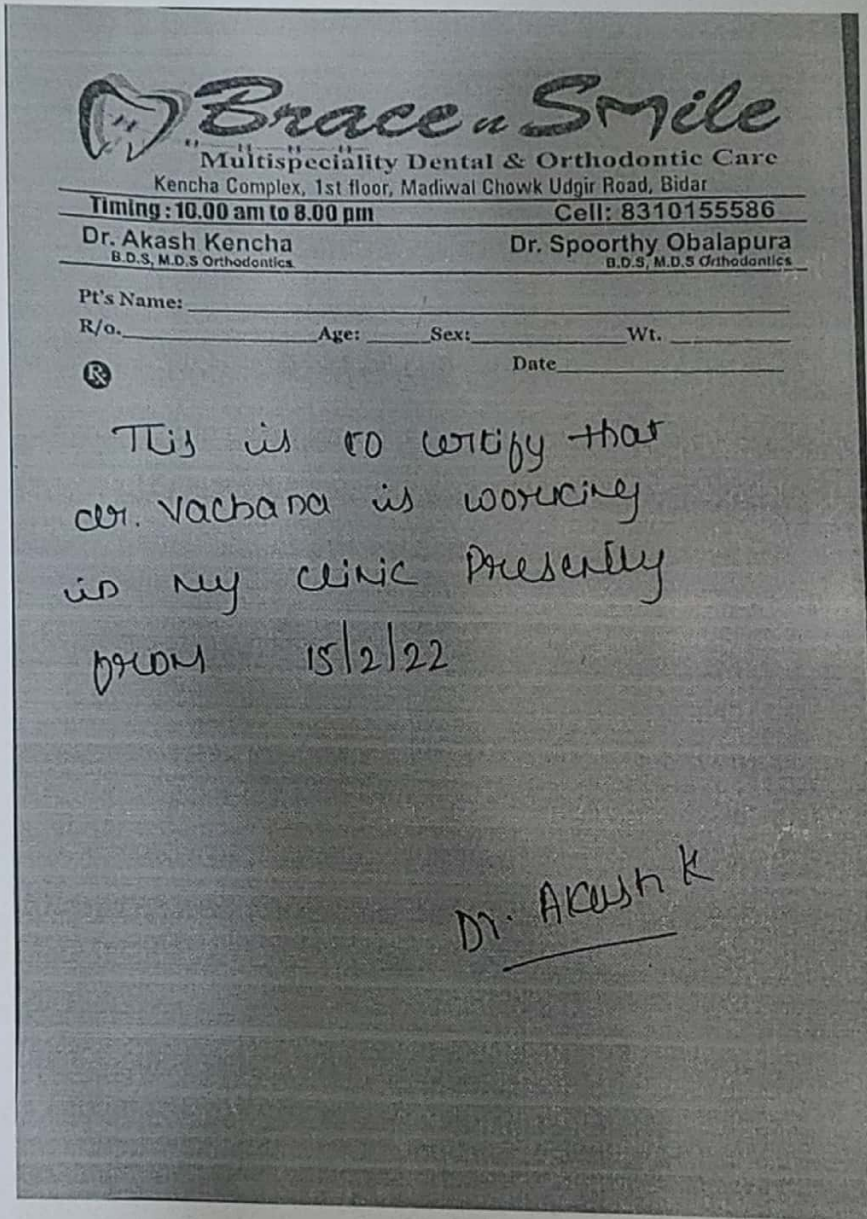 Brace n Smile
Multispeciality Dental & Orthodontic Care
Kencha Complex, 1st floor, Madiwal Chowk Udgir Road, Bidar
Timing : 10.00 am to 8.00 pm Cell: 8310155586
Dr. Akash Kencha Dr. Spoorthy Obalapura
B.D.S, M.D.S Orthodontics B.D.S, M.D.S Orthodontics
Pt's Name:
R/o. Age: Sex: Wt.
Rx Date
This is to certify that
dr. Vachana is working
in my clinic Presently
from 15/2/22
Dr. Akash K